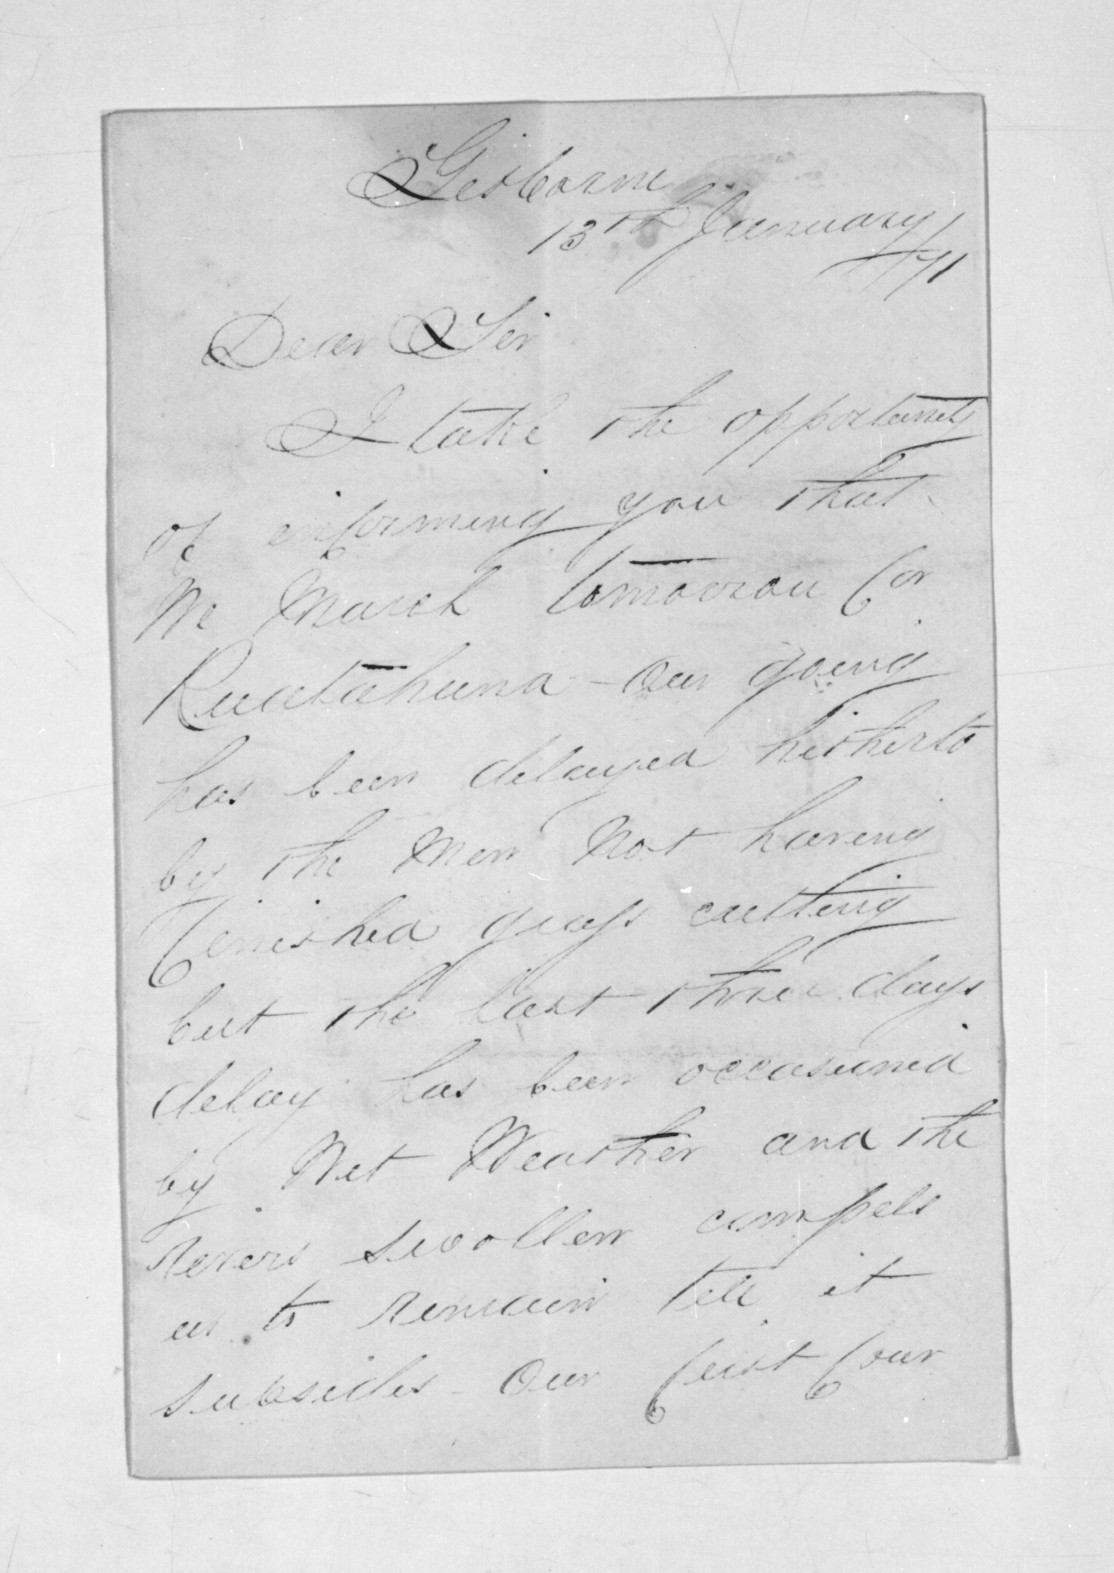 Gisborne
13th January/71
Dear Sir
I take the opportunity
of informing you that
We March tomorrow for
Ruatahuna - Our going
has been delayed hitherto
by the Men Not having
Finished grass cutting
but the last three days
delay has been occasioned
by Wet Weather and the
rivers swollen compels
us to remain till it
subsides - Our first four